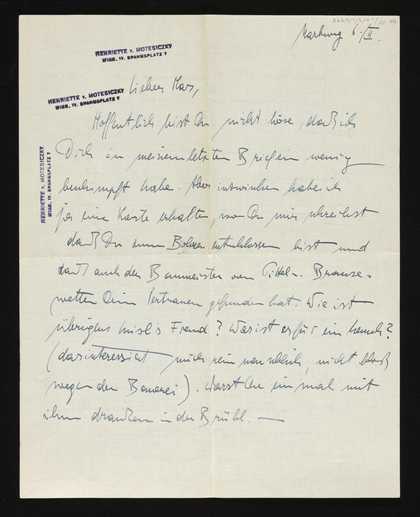 Marburg 6. II.
HENRIETTE v. MOTESICZKY
WIEN, IV. BRAHMSPLATZ 7
HENRIETTE v. MOTESICZKY
WIEN, IV. BRAHMSPLATZ 7
HENRIETTE v. MOTESICZKY
WIEN, IV. BRAHMSPLATZ 7
Liebes
Hoffentlich bist Du nicht böse, daß ich
Dich in meinem letzten Briefen wenig
beschimpft habe. Aber inzwischen habe ich
ja eine Karte erhalten wo Du mir schreibst
daß Du zum entschlossen bist und
daß auch der Baumeister von
Dein Vertrauen gefunden hat. Wie ist
übrigens Freund? Was ist er für ein Mensch?
(das interessiert mich rein menschlich, nicht bloß
wegen der Bauerei). Warst Du einmal mit
ihm draußen in der Brühl. —